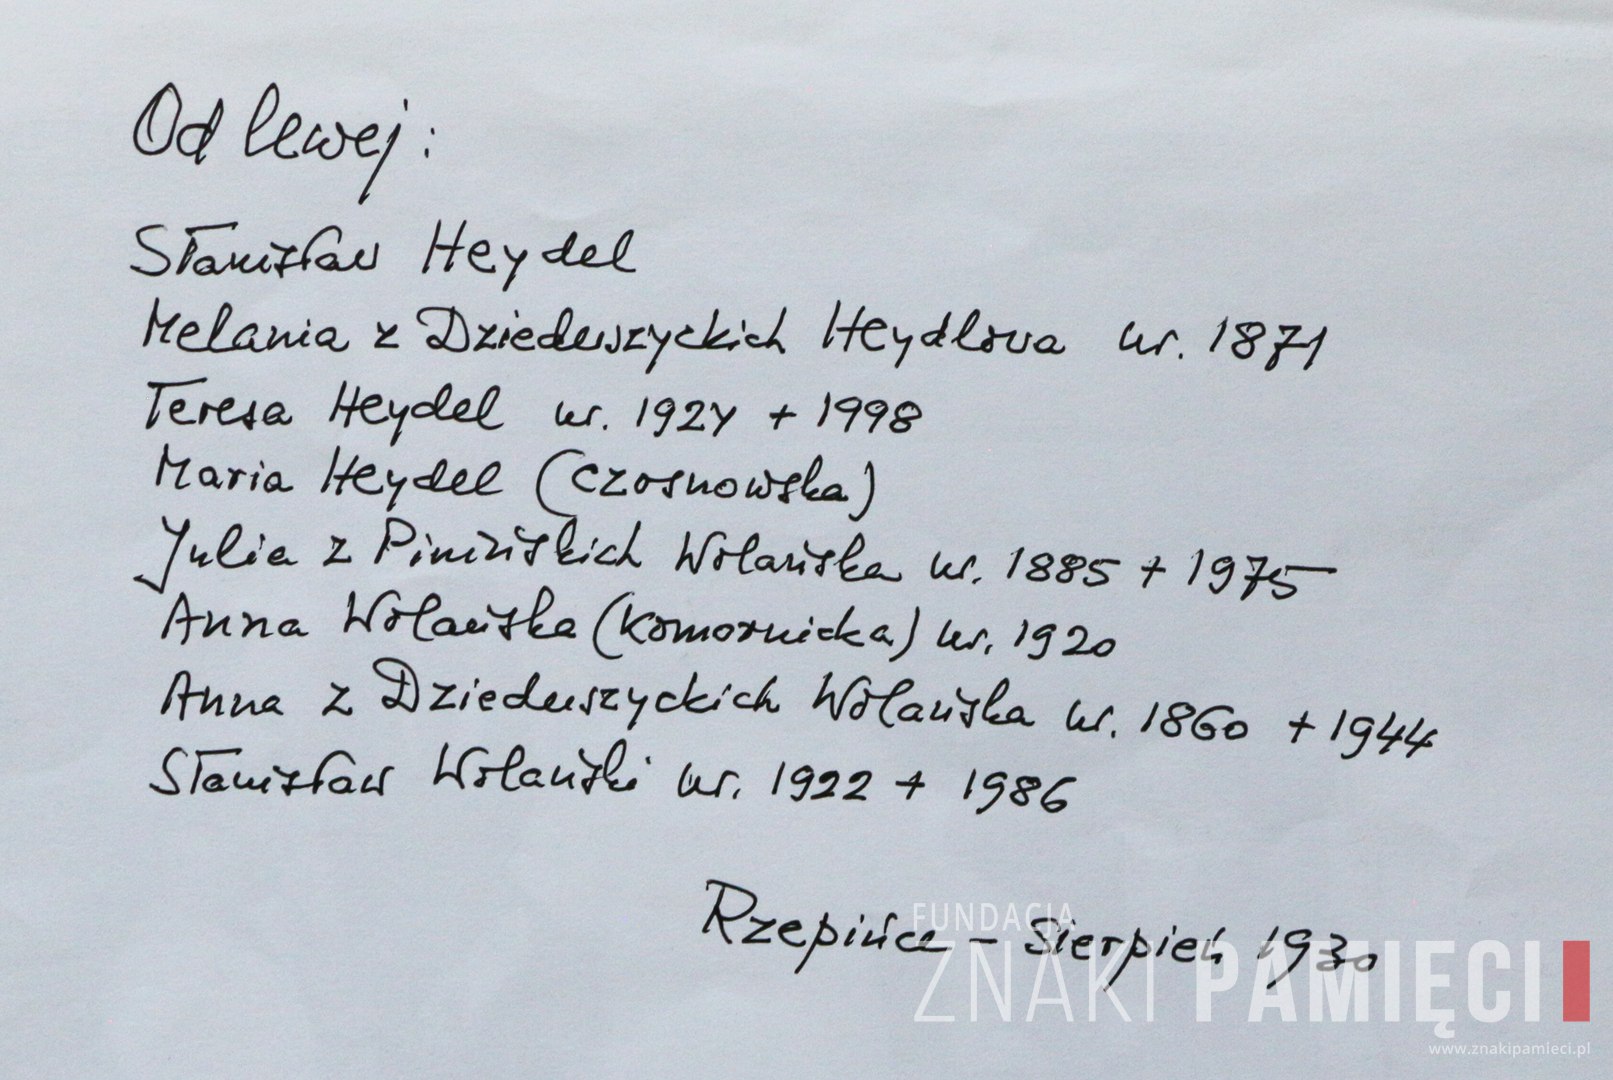 Od lewej:
Stanisław Heydel
Melania z Dzieduszyckich Heydlowa ur. 1871
Teresa Heydel ur. 1924 + 1998
Maria Heydel (Czosnowska)
Julia z Pinińskich Wolańska ur. 1885 + 1975
Anna Wolańska (Komornicka) ur. 1920
Anna z Dzieduszyckich Wolańska ur. 1860 + 1944
Stanisław Wolański ur. 1922 + 1986
Rzepińce - Sierpień 1930
FUNDACJA
ZNAKI PAMIĘCI
www.znakipamieci.pl